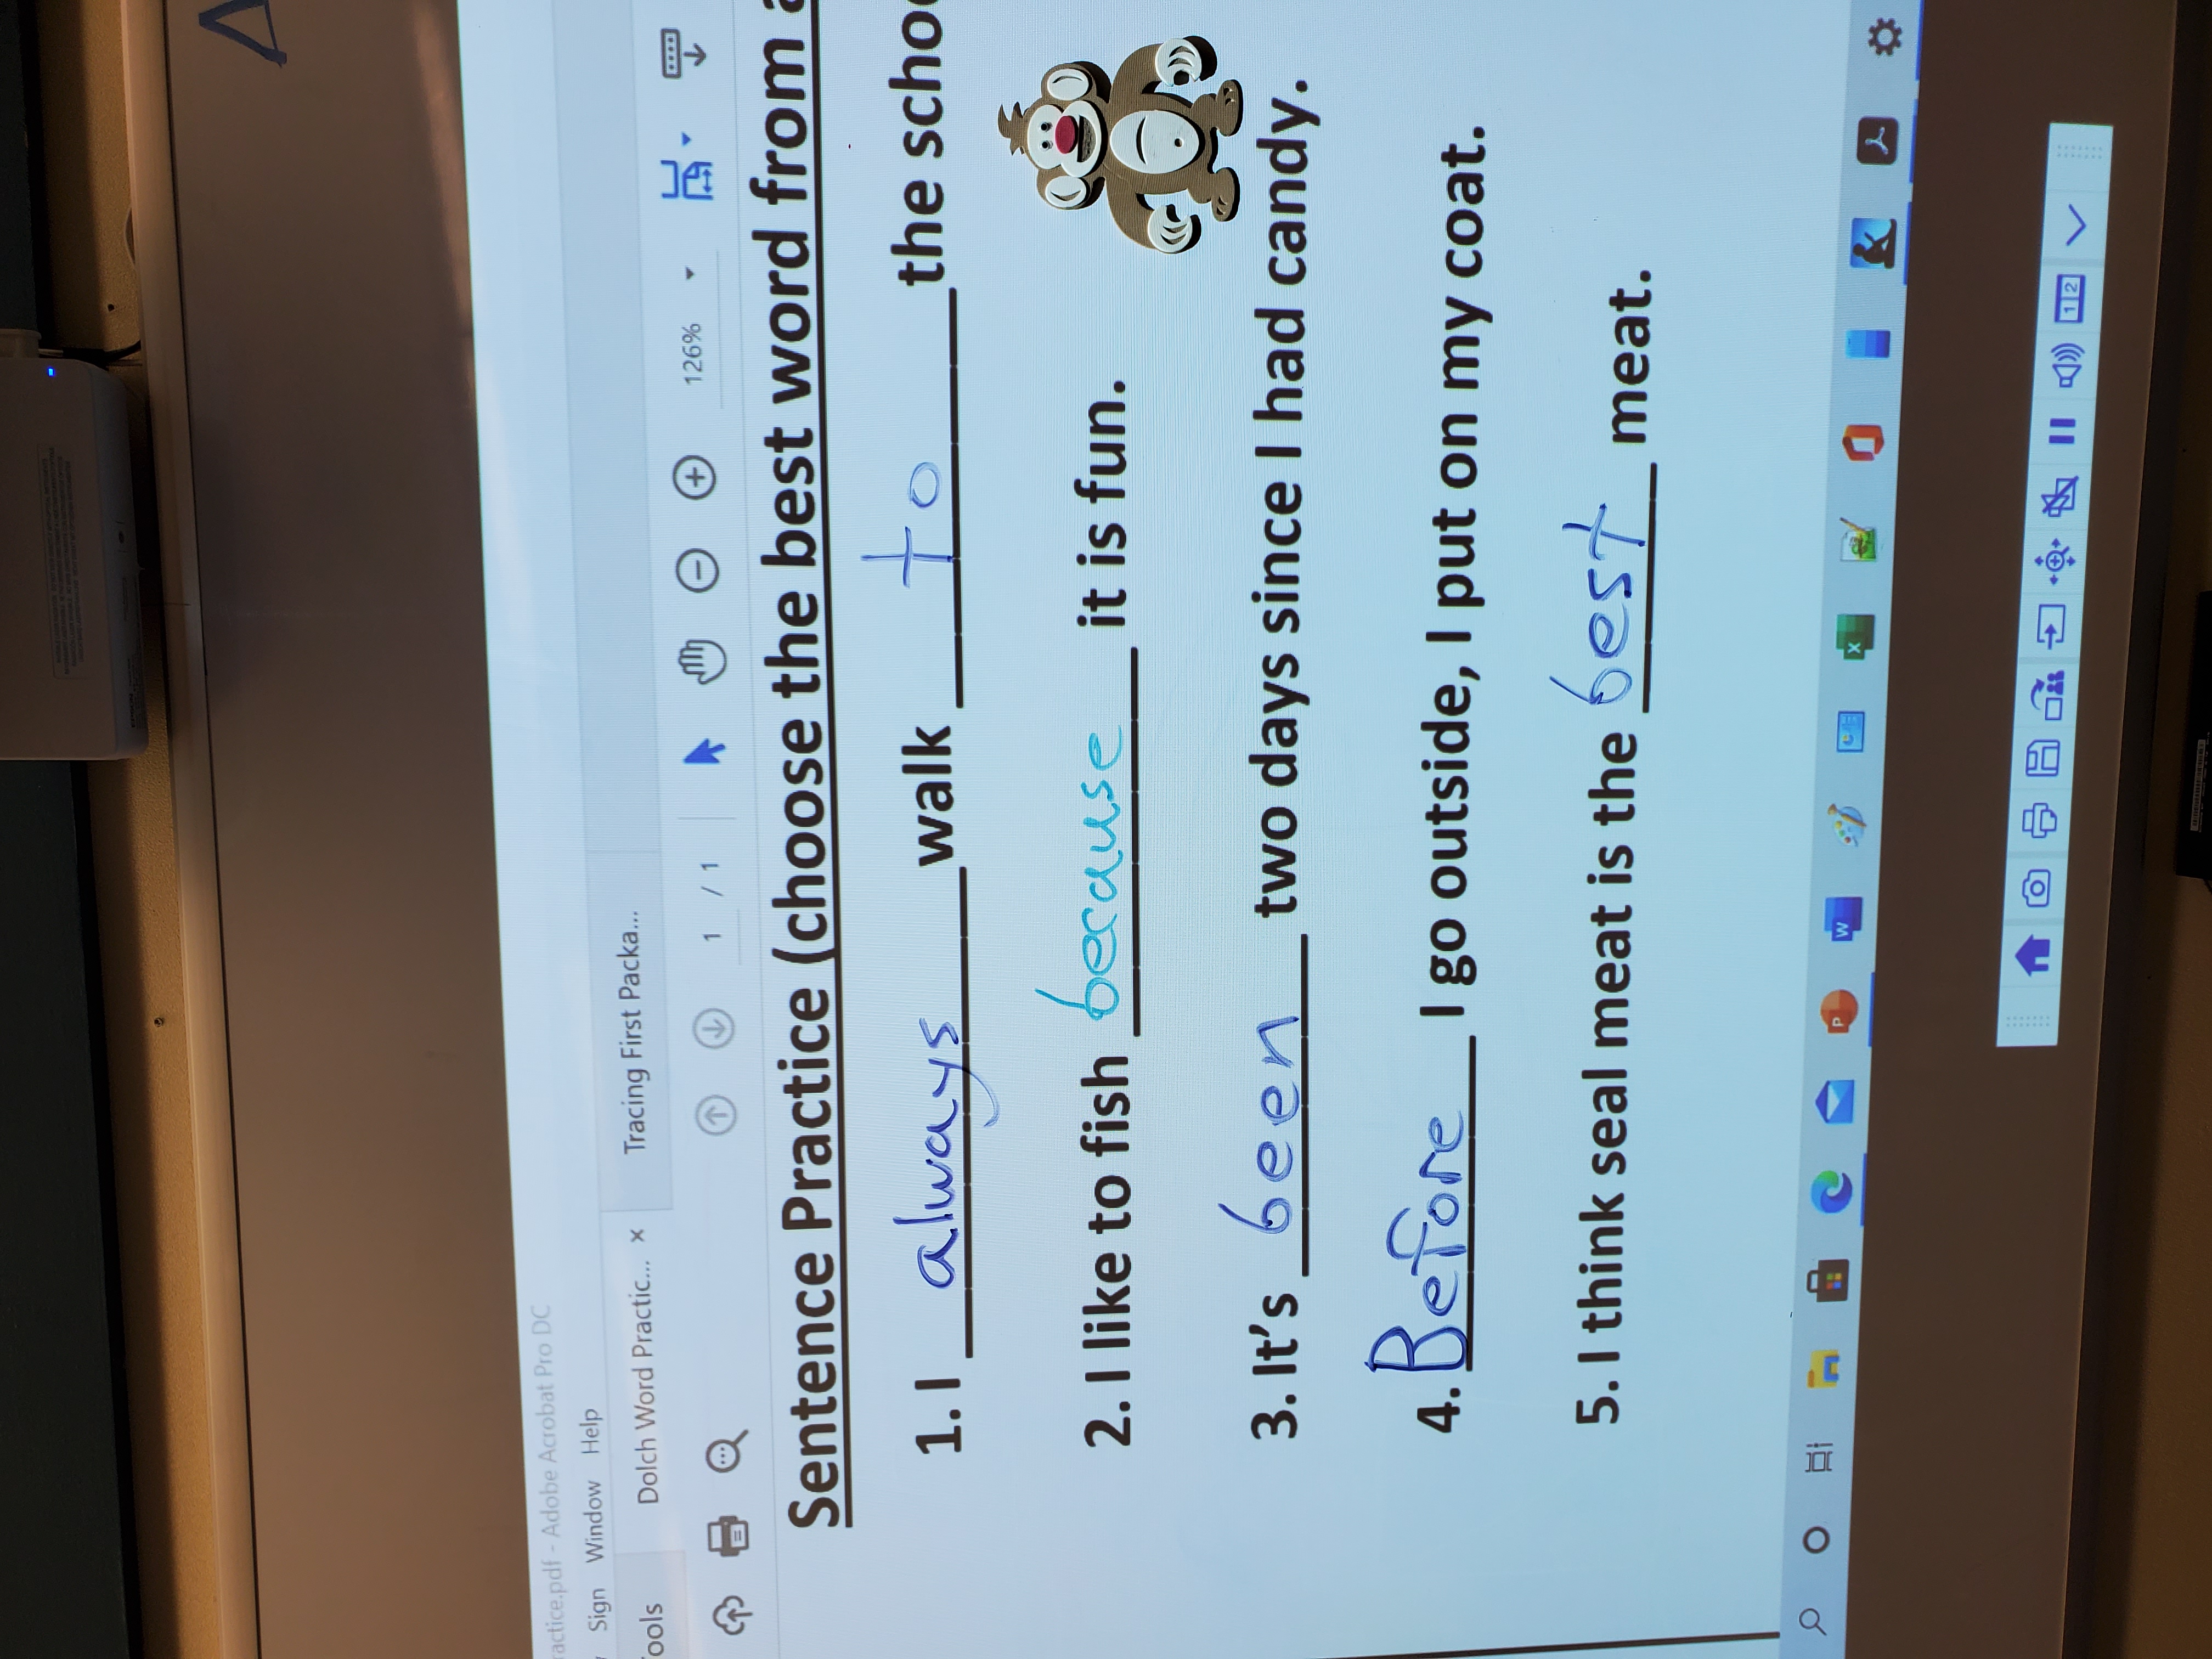 EPSON
A
ractice.pdf - Adobe Acrobat Pro DC
Sign Window Help
ools Dolch Word Practic... × Tracing First Packa...
1 / 1 126%
Sentence Practice (choose the best word from a
1. I always walk to the schoo
2. I like to fish because it is fun.
3. It's been two days since I had candy.
4. Before I go outside, I put on my coat.
5. I think seal meat is the best meat.
1 2